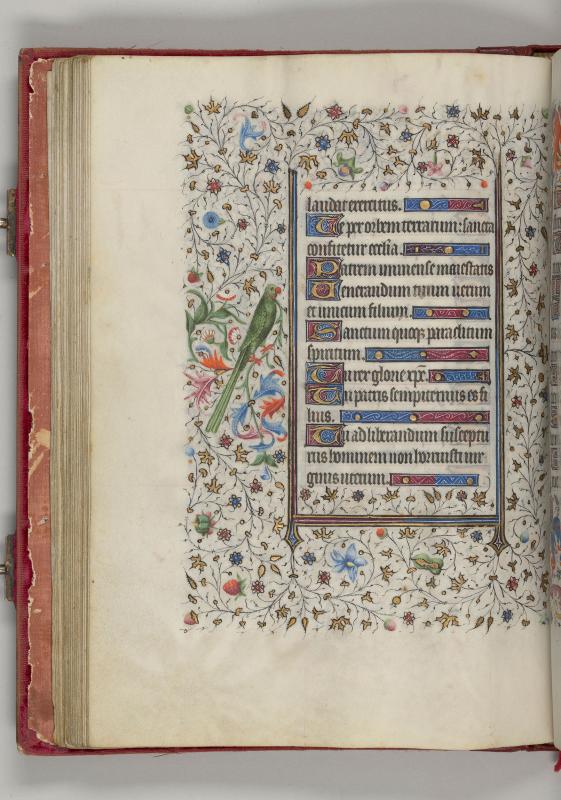 laudat exercitus.
Te per orbem terrarum: sancta
confitetur ecclia.
Patrem inmense maiestatis
Venerandum tuum uerum
et unicum filium.
Sanctum quoq; paraclitum
spiritum.
Tu rex glorie xpe.
Tu patris sempiternus es fi
lius.
Tu ad liberandum susceptu
rus hominem non horruisti uir
ginis uterum.